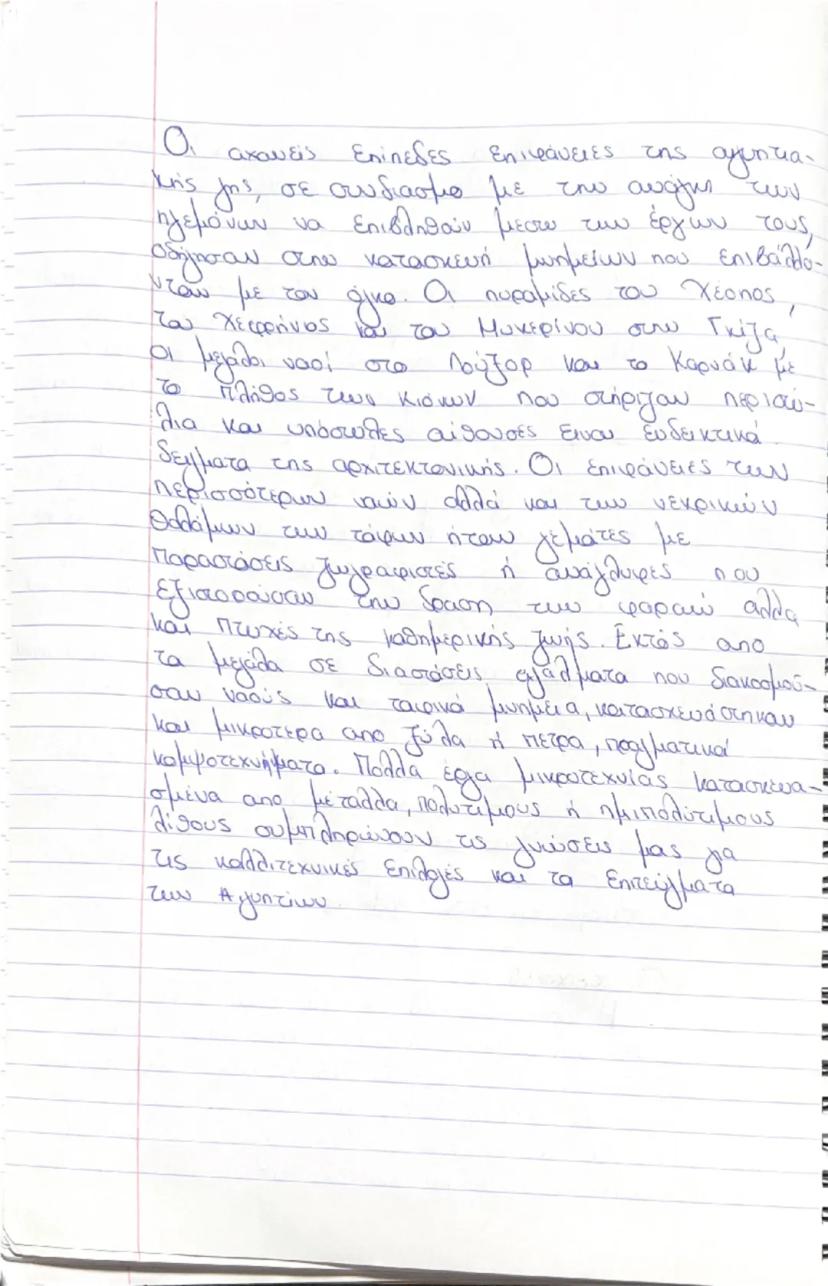 Οι αχανείς επίπεδες επιφάνειες της αιγυπτια-
κής γης, σε συνδιασμο με την ανάγκη των
ηγεμόνων να επιβληθούν μεσω των έργων τους,
οδήγησαν στην κατασκευή μνημείων που επιβάλλο-
νταν με τον όγκο. Οι πυραμίδες του Χέοπος,
του Χεφρήνος και του Μυκερίνου στην Γκίζα,
οι μεγάλοι ναοί στο Λούξορ και το Καρνάκ με
το πλήθος των κιόνων που στήριζαν περιστύ-
λια και υπόστυλες αίθουσες ειναι ενδεικτικά
δειγματα της αρχιτεκτονικής. Οι επιφάνειες των
περισσότερων ναών αλλά και των νεκρικών
θαλάμων των τάφων ήταν γεμάτες με
παραστάσεις ζωγραφιστές ή ανάγλυφες που
εξιστορούσαν την δραση των φαραώ αλλα
και πτυχές της καθημερικής ζωής. Εκτός απο
τα μεγάλα σε διαστάσεις αγάλματα που διακοσμού-
σαν ναούς και ταφικά μνημεια, κατασκευάστηκαν
και μικροτερα απο ξύλα ή πετρα, πραγματικά
κομψοτεχνήματα. Πολλα έργα μικροτεχνίας κατασκευα-
σμένα απο μέταλλα, πολυτιμους ή ημιπολύτιμους
λίθους συμπληρώνουν τις γνώσεις μας για
τις καλλιτεχνικές επιλογές και τα επιτεύγματα
των Αιγυπτίων.